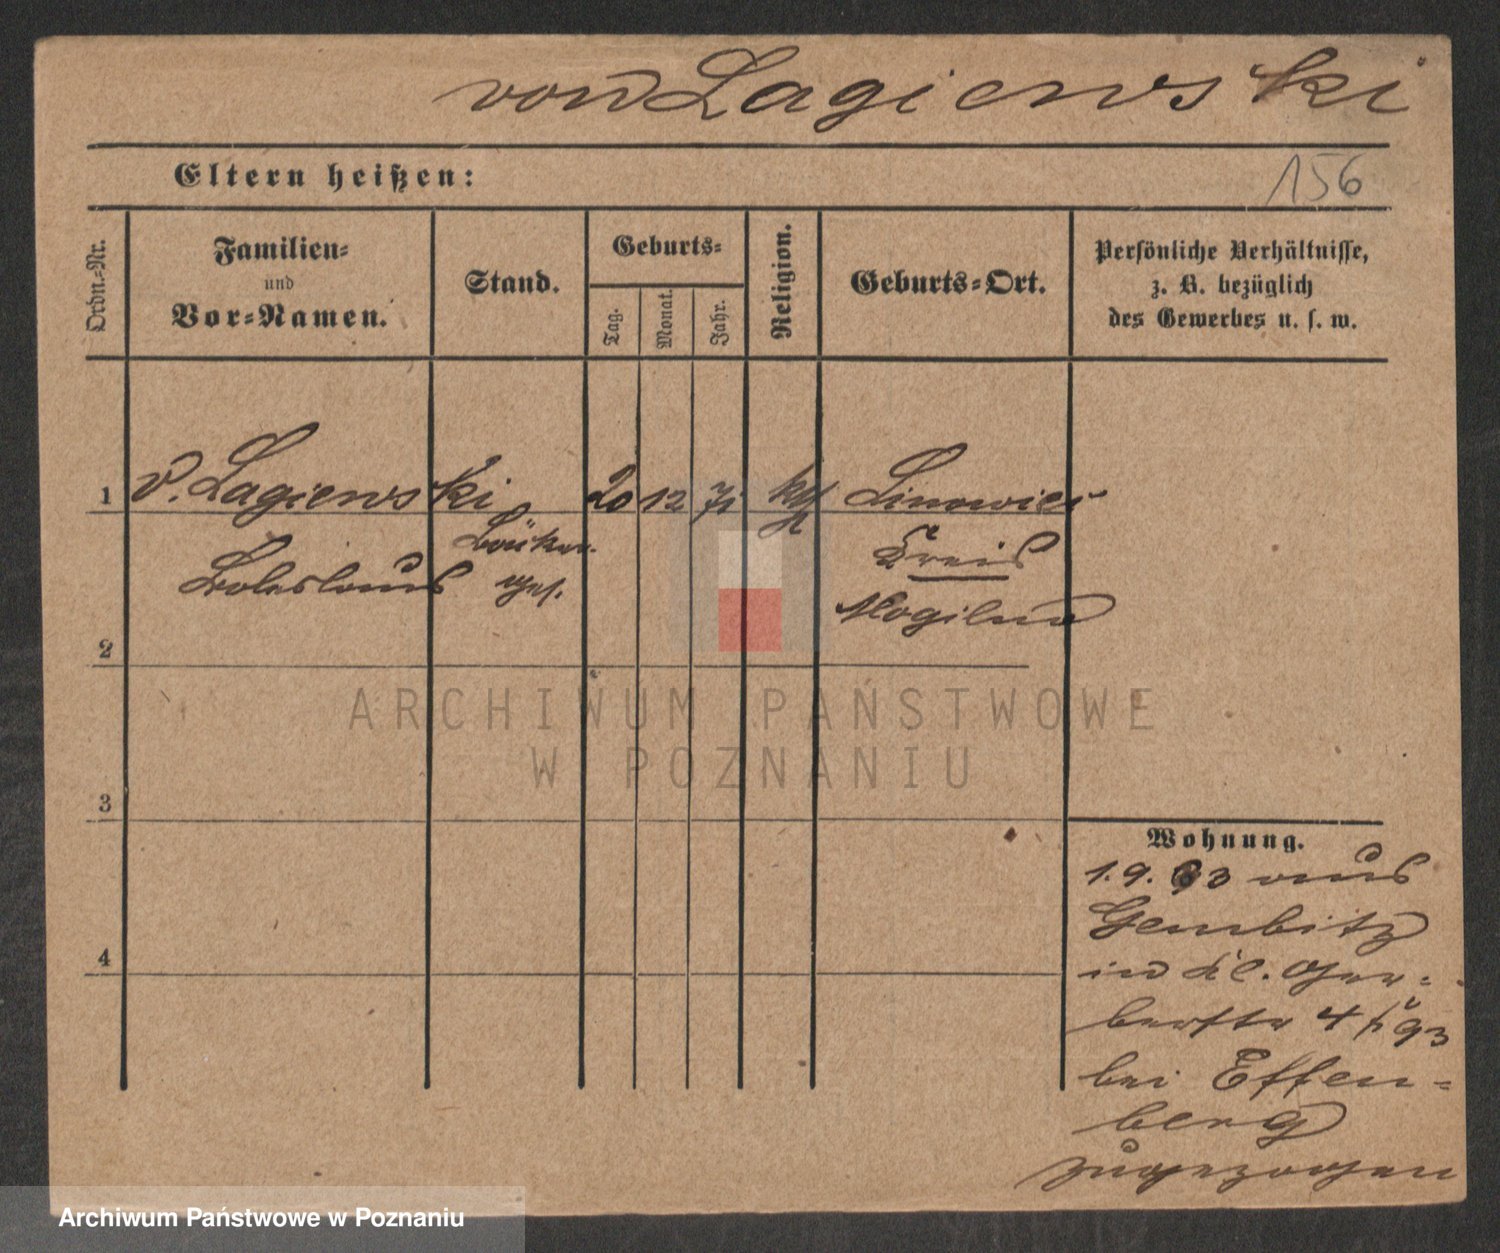 von Lagiewski
Eltern heißen:
156
Ordn.-Nr.
Familien-
und
Vor-Namen.
Stand.
Geburts-
Tag.
Monat.
Jahr.
Religion.
Geburts-Ort.
Persönliche Verhältnisse,
z. B. bezüglich
des Gewerbes u. s. w.
1 v. Lagiewski 20 12 71 kth Linowiec
Bäcker
Boleslaus ges.
Kreis
Mogilno
2
3
4
Wohnung.
1.9.93 aus
Gembitz
in kl. Ger-
berstr 4 93
bei Effen-
berg
zugezogen
ARCHIWUM PAŃSTWOWE
W POZNANIU
Archiwum Państwowe w Poznaniu